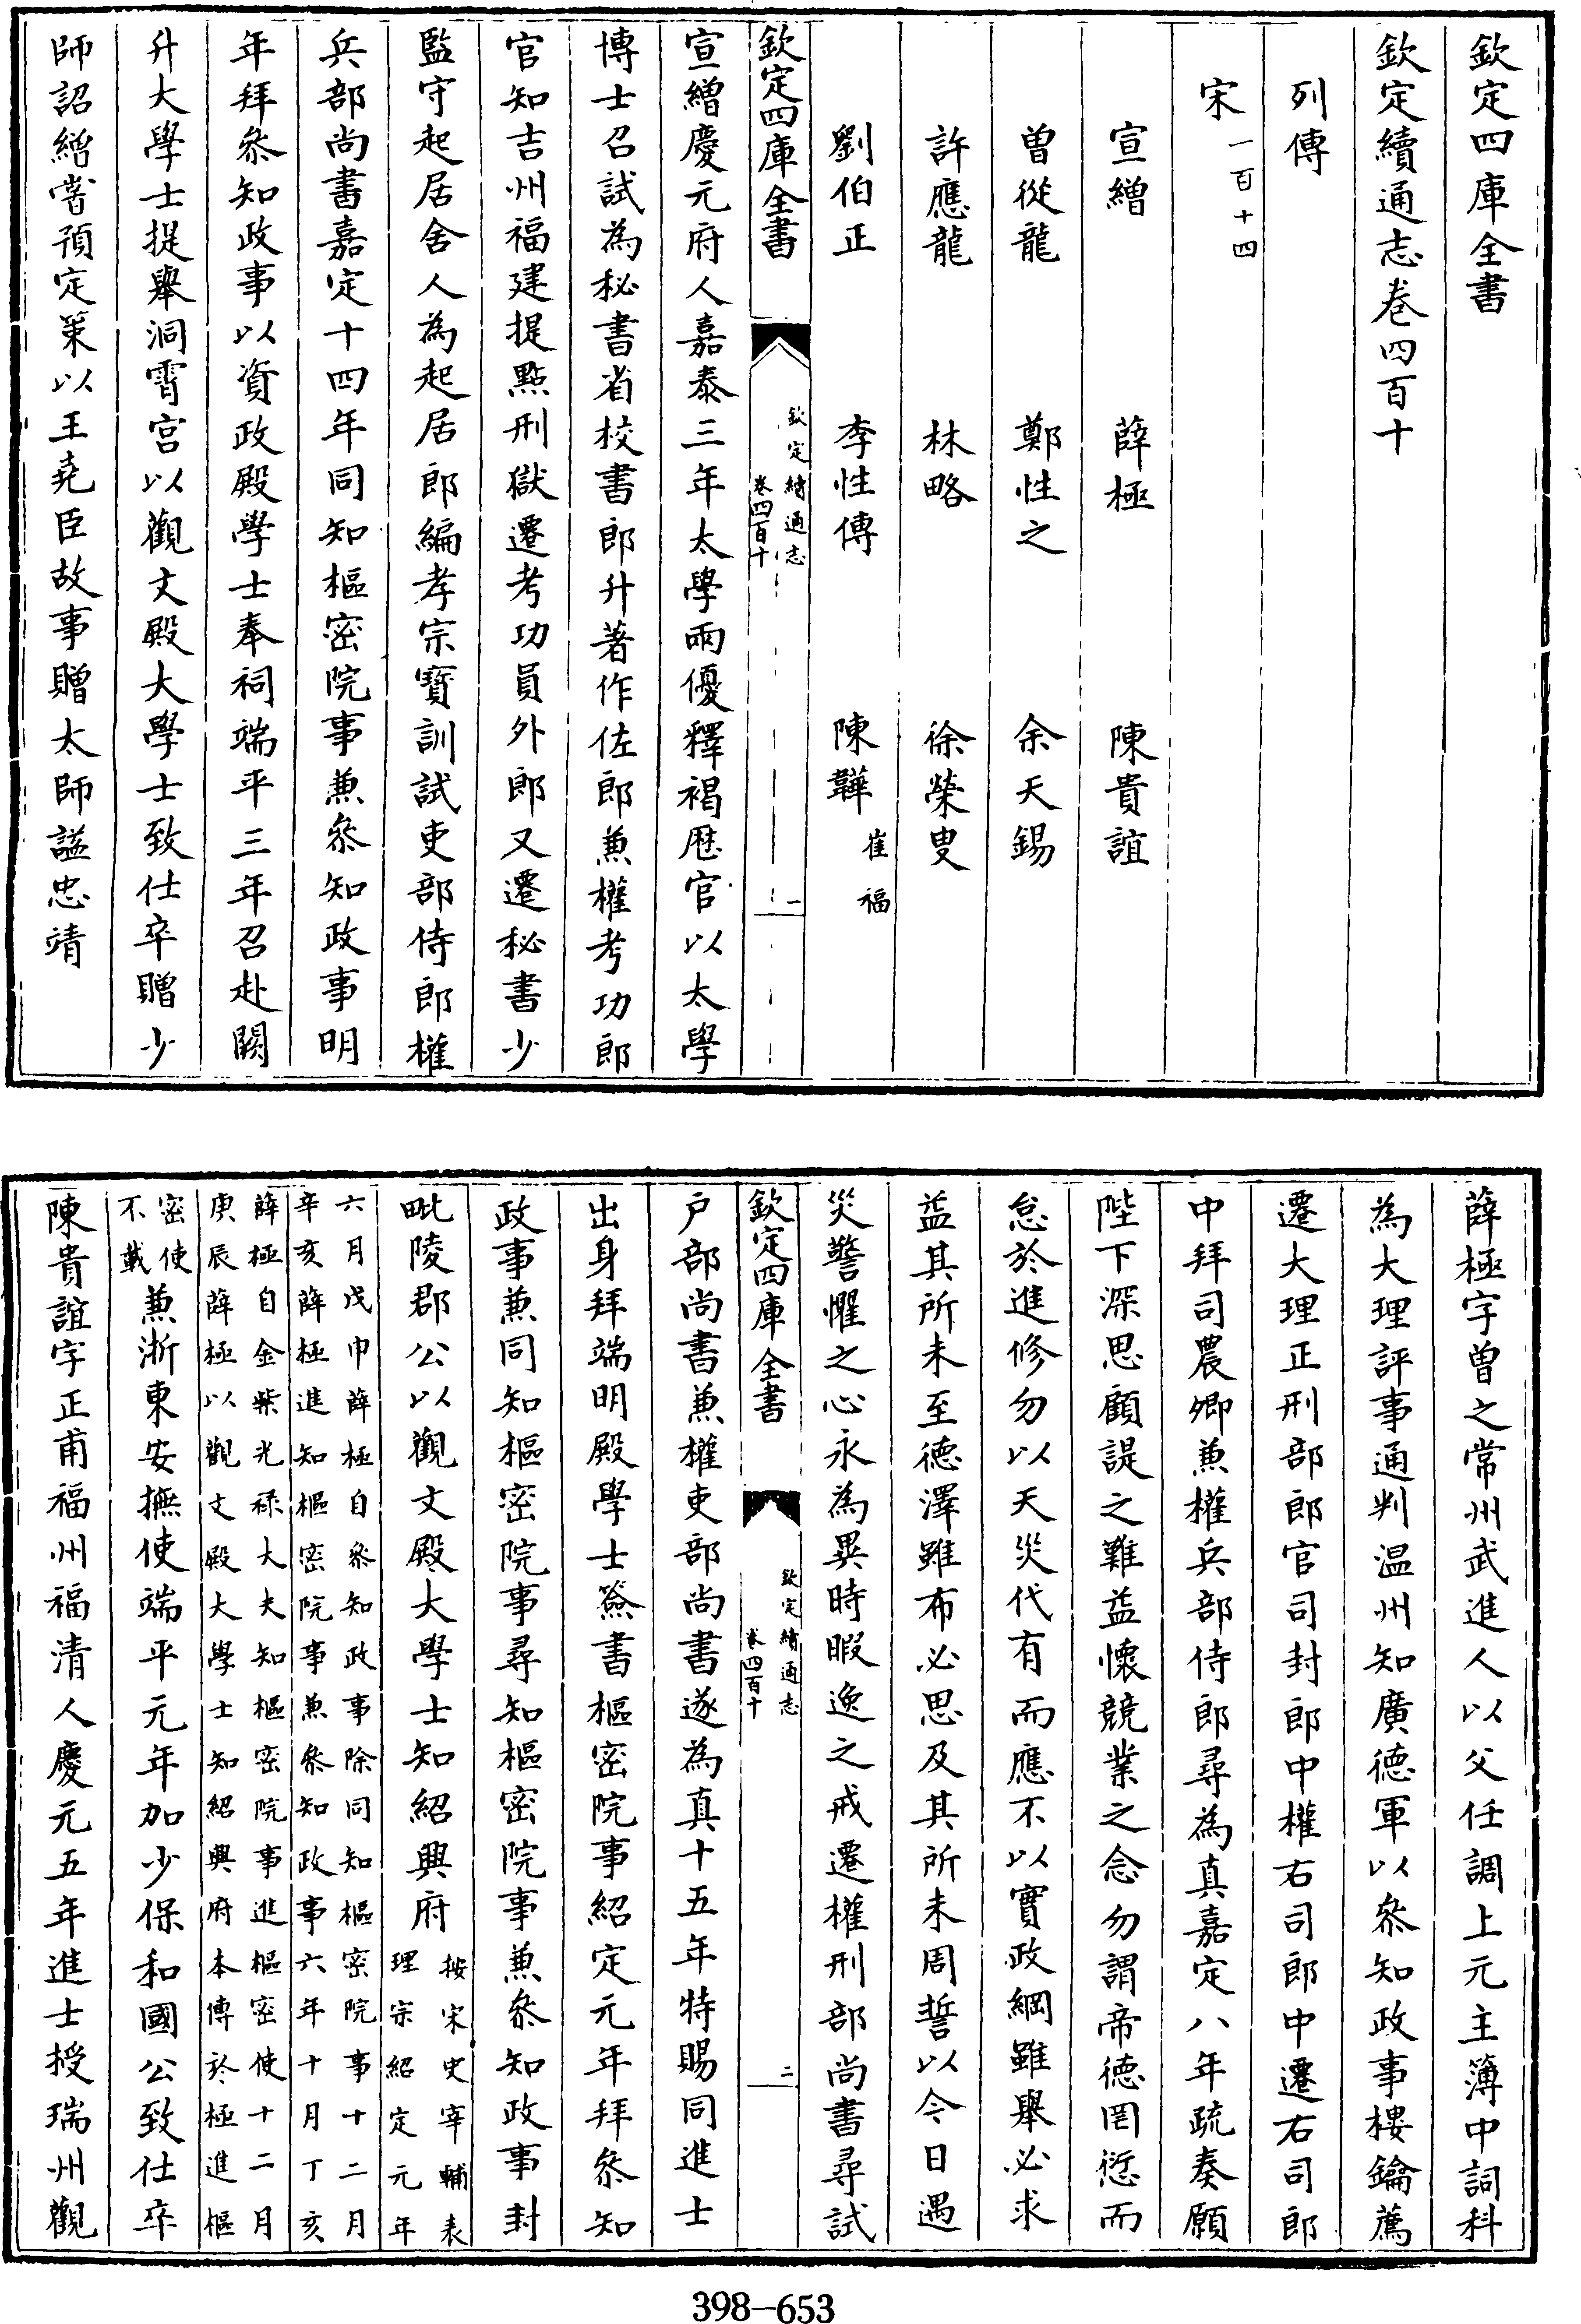 欽定四庫全書
欽定續通志卷四百十
列傳
宋一百十四
宣繒 薛極 陳貴誼
曾從龍 鄭性之 余天錫
許應龍 林略 徐榮叟
劉伯正 李性傳 陳韡崔福
欽定四庫全書 欽定續通志卷四百十 一
宣繒慶元府人嘉泰三年太學兩優釋褐歷官以太學
博士召試為秘書省校書郎升著作佐郎兼權考功郎
官知吉州福建提點刑獄遷考功員外郎又遷秘書少
監守起居舍人為起居郎編孝宗寶訓試吏部侍郎權
兵部尚書嘉定十四年同知樞密院事兼叅知政事明
年拜叅知政事以資政殿學士奉祠端平三年召赴闕
升大學士提舉洞霄宮以觀文殿大學士致仕卒贈少
師詔繒嘗預定策以王堯臣故事贈太師諡忠靖
薛極字曾之常州武進人以父任調上元主簿中詞科
為大理評事通判温州知廣德軍以叅知政事樓鑰薦
遷大理正刑部郎官司封郎中權右司郎中遷右司郎
中拜司農卿兼權兵部侍郎尋為真嘉定八年疏奏願
陛下深思顧諟之難益懷競業之念勿謂帝德罔愆而
怠於進修勿以天災代有而應不以實政綱雖舉必求
益其所未至德澤雖布必思及其所未周誓以今日遇
災警懼之心永為異時暇逸之戒遷權刑部尚書尋試
欽定四庫全書 欽定續通志卷四百十 二
户部尚書兼權吏部尚書遂為真十五年特賜同進士
出身拜端明殿學士簽書樞密院事紹定元年拜叅知
政事兼同知樞密院事尋知樞密院事兼叅知政事封
毗陵郡公以觀文殿大學士知紹興府按宋史宰輔表理宗紹定元年
六月戊申薛極自叅知政事除同知樞密院事十二月辛亥薛極進知樞密院事兼叅知政事六年十月丁亥
薛極自金紫光祿大夫知樞密院事進樞密使十二月庚辰薛極以觀文殿大學士知紹興府本傳於極進樞
密使不載兼浙東安撫使端平元年加少保和國公致仕卒
陳貴誼字正甫福州福清人慶元五年進士授瑞州觀
398-653